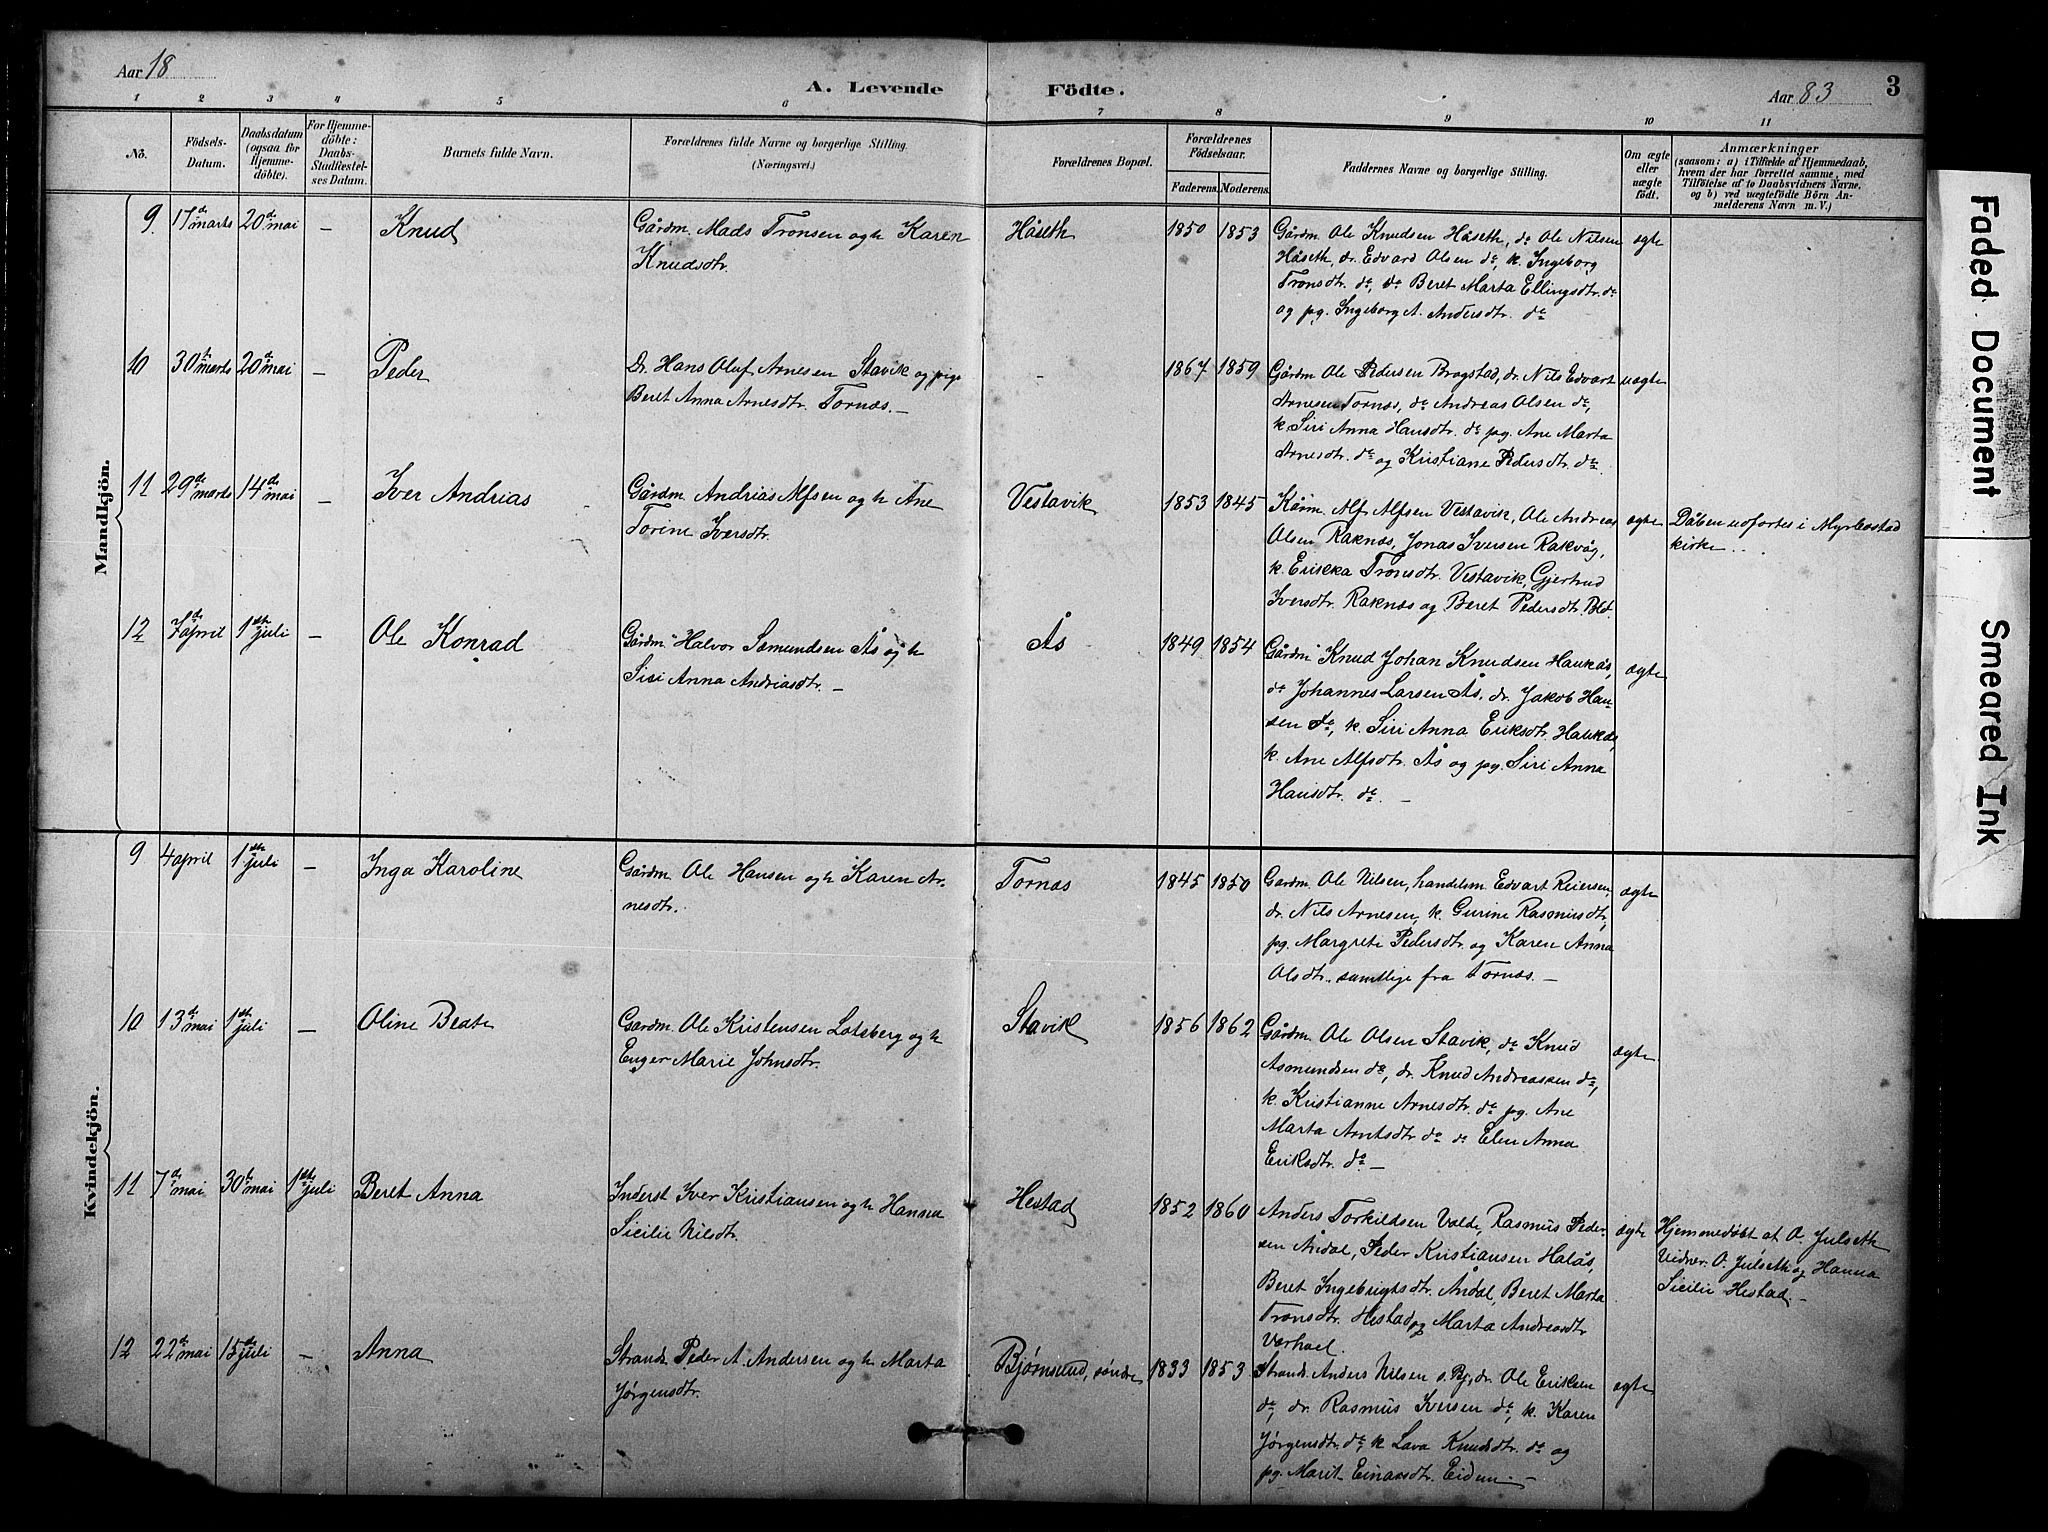 Aar 18
A. Levende
Födte.
Aar 83
3
1 2 3 4 5 6 7 8 9 10 11
No.
Födsels-
Datum.
Daabsdatum
(ogsaa for
Hjemme-
döbte).
For Hjemme-
döbte:
Daabs-
Stadfæstel-
ses Datum.
Barnets fulde Navn.
Forældrenes fulde Navne og borgerlige Stilling.
(Næringsvei.)
Forældrenes Bopæl.
Forældrenes
Födselsaar.
Faderens. Moderens.
Faddernes Navne og borgerlige Stilling.
Om ægte
eller
uægte
födt.
Anmærkninger
(saasom: a) i Tilfælde af Hjemmedaab,
hvem der har forrettet samme, med
Tilföielse af to Daabsvidners Navne,
og b) ved uægtefödte Börn An-
melderens Navn m. V.)
Mandkjön.
9. 17de marts 20de mai – Knud
Gårdm. Mads Tronsen og h. Karen
Knudsdtr.
Håseth
1850 1853
Gårdm. Ole Knudsen Håseth, do Ole Nilsen
Håseth, dr. Edvard Olsen do, k. Ingeborg
Tronsdtr. do, do Beret Marta Ellingsdtr. do
og pg. Ingeborg A. Andersdtr. do
ægte
10 30te marts 20de mai – Peder
Dr. Hans Oluf Arnesen Stavik og pige
Beret Anna Arnesdtr. Tornæs. –
-
1867 1859
Gårdm Ole Pedersen Bragstad, dr. Nils Edvart
Arnesen Tornæs, do Andreas Olsen do,
k. Siri Anna Hansdtr. do pg. Ane Marta
Arnesdtr. do og Kristiane Pedersdtr. do
uægte
11 29de marts 14de mai – Iver Andrias
Gårdm. Andrias Alfsen og h. Ane
Torine Iversdtr.
Vestavik
1853 1845
Kårm. Alf Alfsen Vestavik, Ole Andreas
Olsen Raknæs, Jonas Iversen Rakvåg,
k. Erikka Tronsdtr. Vestavik, Gjertrud
Iversdtr. Raknæs og Beret Pedersdtr.
ægte
Dåben udførtes i Myrbostad
kirke..
12 7de april 1ste juli – Ole Konrad
Gårdm. Halvor Sæmundsen Ås og h
Siri Anna Andriasdtr. –
Ås
1849 1854
Gårdm. Knud Johan Knudsen Haukås,
do Johannes Larsen Ås, dr. Jakob Han-
sen do, k. Siri Anna Eriksdtr. Haukås,
k. Ane Alfsdtr. Ås og pg. Siri Anna
Hansdtr. do. –
ægte
Kvindekjön.
9 4 april 1ste juli – Inga Karoline
Gårdm. Ole Hansen og h. Karen Ar-
nesdtr.
Tornæs
1845 1850
Gardm. Ole Nilsen, handelsm Edvart Reiersen
dr. Nils Arnesen, k. Gurine Rasmusdtr,
pg. Margrete Pedersdtr. og Karen Anna
Olsdtr. samtlige fra Tornæs. –
ægte
10 13de mai 1ste juli – Oline Beate
Gardm. Ole Kristensen Lotsberg og h
Enger Marie Johnsdtr.
Stavik
1856 1862
Gårdm. Ole Olsen Stavik, do Knud
Asmundsen do, dr. Knud Andreassen do,
k. Kristianne Arnesdtr. do pg. Ane
Marta Arntsdtr. do do Elen Anna
Eriksdtr. do –
ægte
11 7de mai 30te mai 1ste juli Beret Anna
Inderst Iver Kristiansen og h Hanna
Sicilie Nilsdtr.
Hestad
1852 1860
Anders Torkildsen Volde, Rasmus Peder-
sen Årdal, Peder Kristiansen Halås,
Beret Ingebrigtsdtr. Årdal, Beret Marta
Tronsdtr. Hestad og Marta Andreasdtr
Varhoel.
ægte
Hjemmedøbt af O. Julseth
Vidner: O. Julseth og Hanna
Sicilie Hestad. –
12 22de mai 15de juli – Anna
Strands. Peder A. Andersen og h Marta
Jørgensdtr.
Bjørnsund, søndre
1833 1853
Strands. Anders Nilsen s. Bj., dr. Ole Eriksen
do, dr. Rasmus Iversen do, k. Karen
Jørgensdtr. do, k Lava Knudsdtr. do og
pg. Marit Einarsdtr. Eiden. –
ægte
Faded Document
Smeared Ink